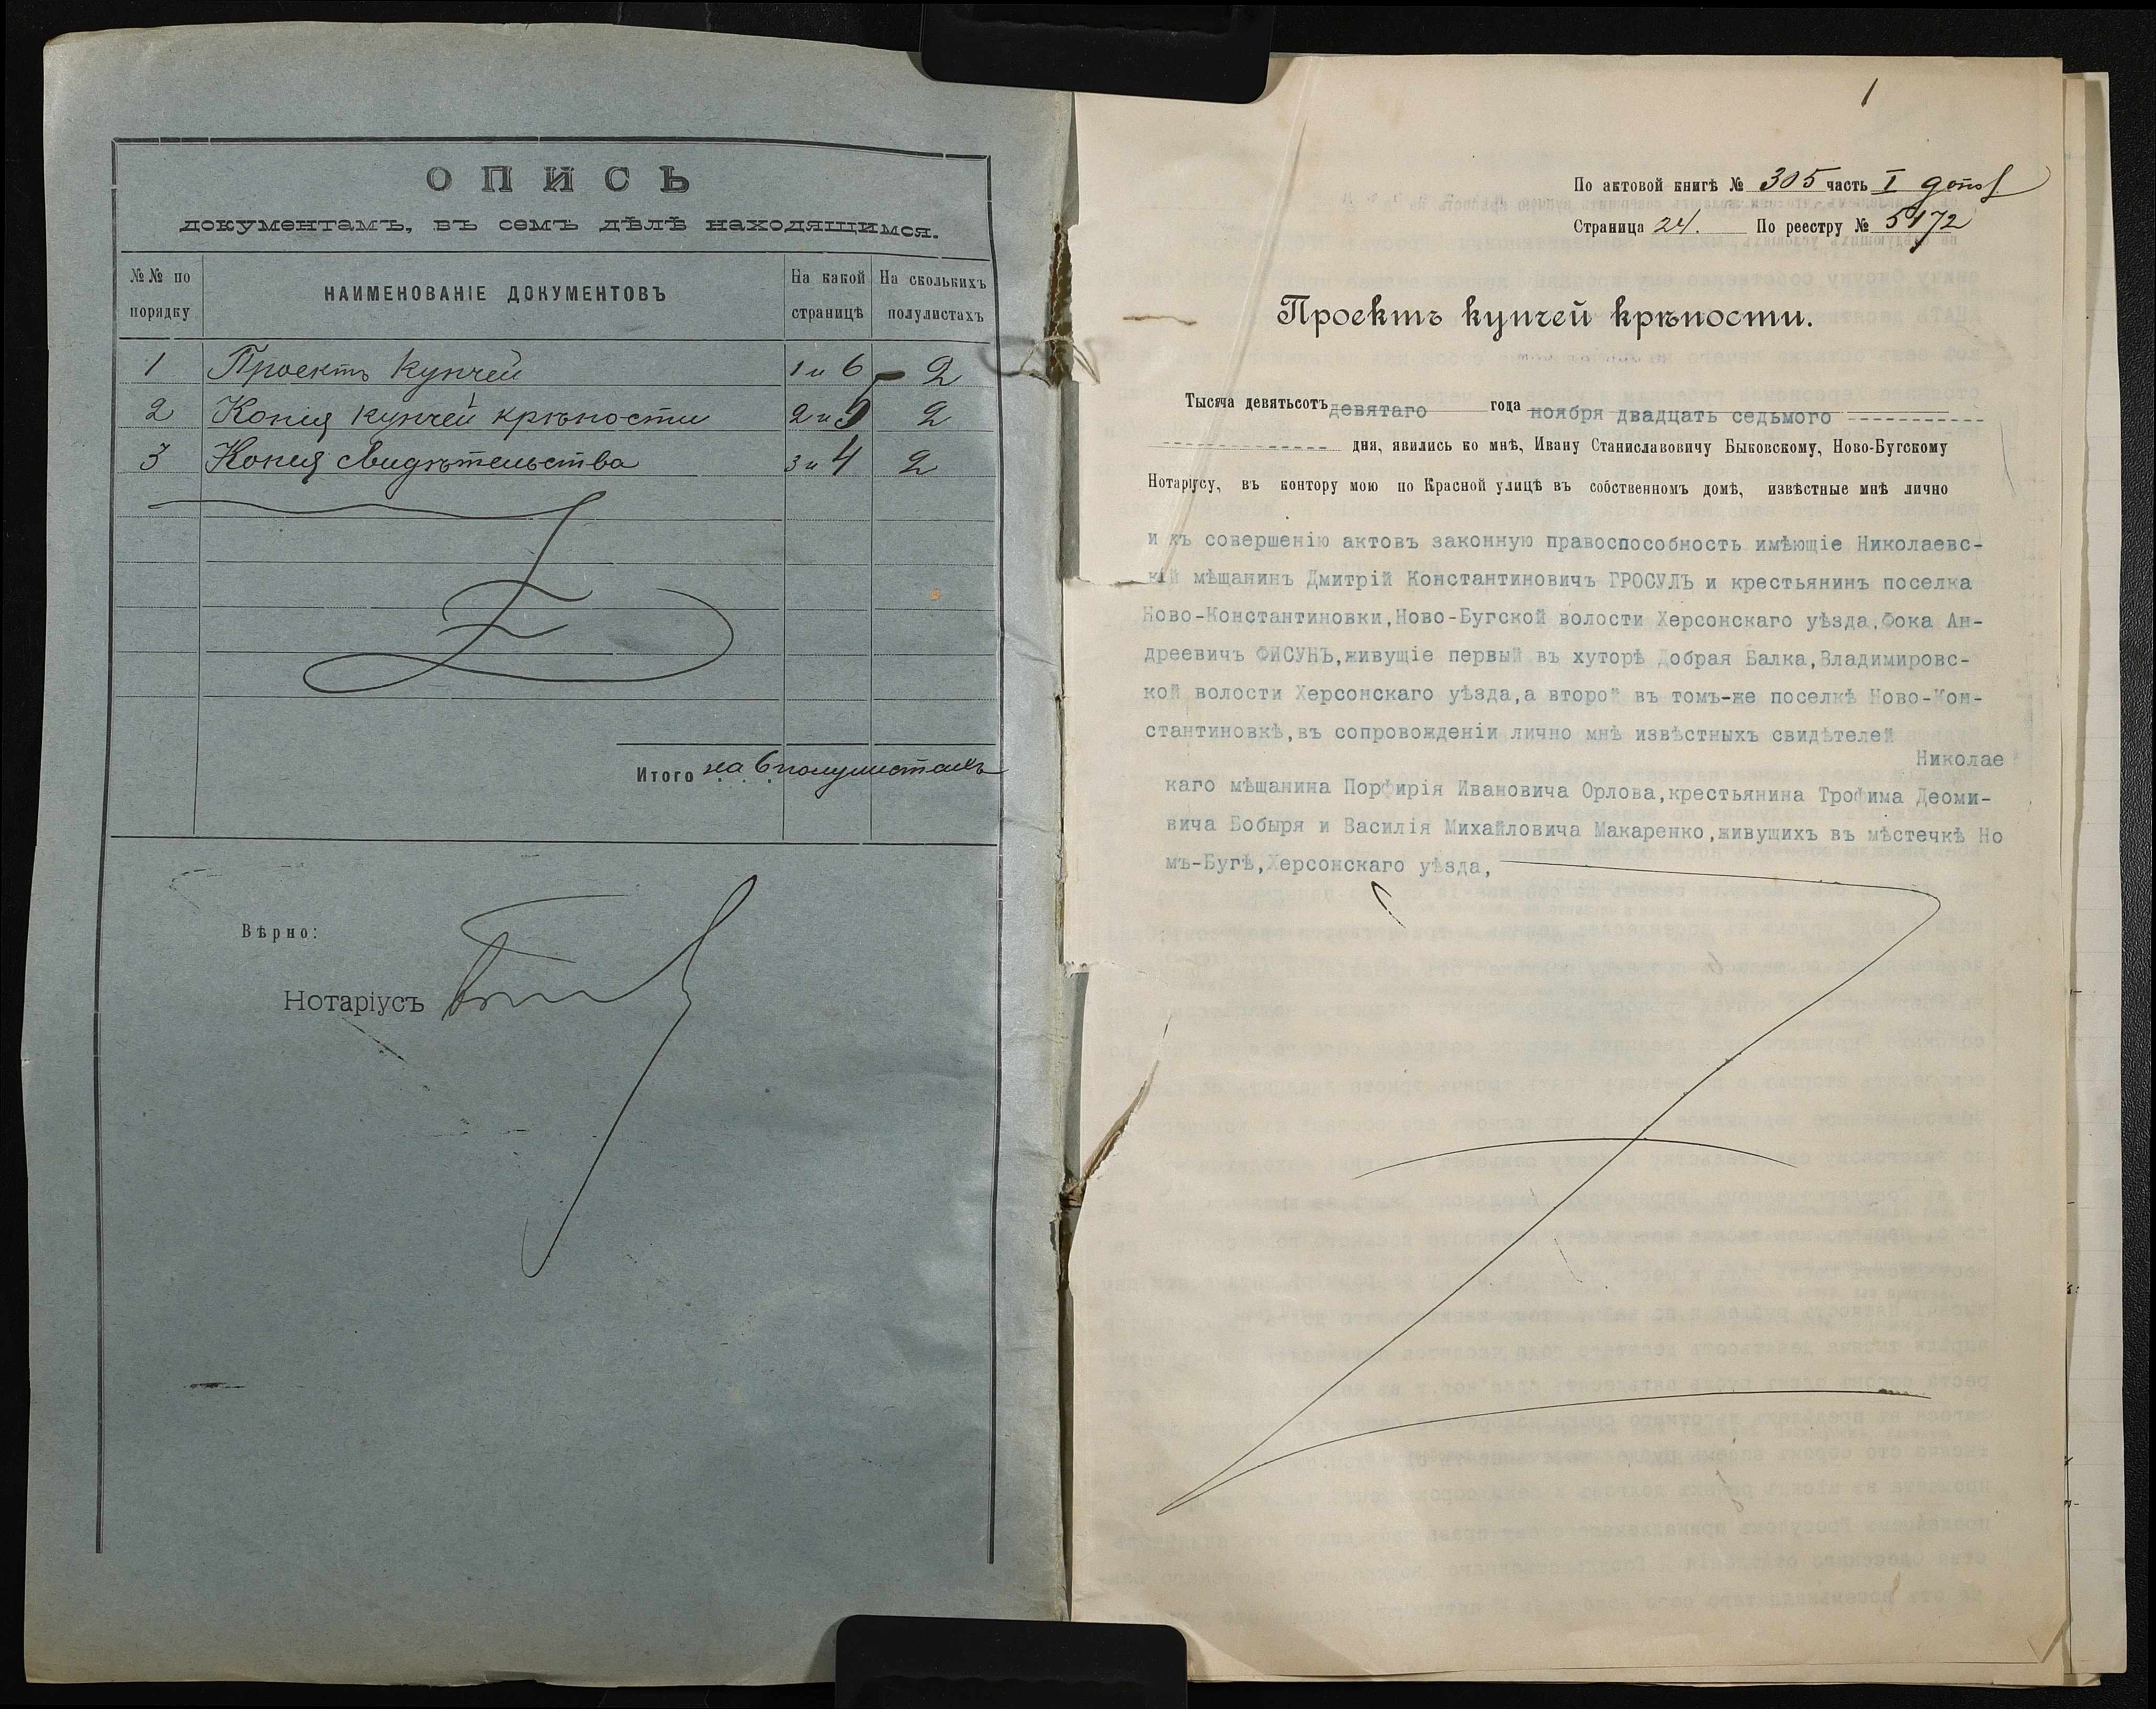 ОПИСЬ
документамъ, въ семъ дѣлѣ находящимся.
№№ по порядку
НАИМЕНОВАНІЕ ДОКУМЕНТОВЪ
На какой страницѣ
На сколькихъ полулистахъ
1 Проектъ купчей 1 и 6 2
2 Копия купчей крѣпости 2 и 5 2
3 Копия свидѣтельства 3 и 4 2
Итого на 6 полулистахъ
Вѣрно:
Нотаріусъ
1
По актовой книгѣ № 305 часть I
Страница 24. По реестру № 5172
Проектъ купчей крѣпости.
Тысяча девятьсотъ девятаго года ноября двадцать седьмого
дня, явились ко мнѣ, Ивану Станиславовичу Быковскому, Ново-Бугскому
Нотаріусу, въ контору мою по Красной улицѣ въ собственномъ домѣ, извѣстные мнѣ лично
и къ совершенію актовъ законную правоспособность имѣющіе Николаевс-
кій мѣщанинъ Дмитрій Константиновичъ ГРОСУЛЪ и крестьянинъ поселка
Ново-Константиновки, Ново-Бугской волости Херсонскаго уѣзда, Фока Ан-
дреевичъ ФИСУНЪ, живущіе первый въ хуторѣ Добрая Балка, Владимировс-
кой волости Херсонскаго уѣзда, а второй въ томъ-же поселкѣ Ново-Кон-
стантиновкѣ, въ сопровожденіи лично мнѣ извѣстныхъ свидѣтелей
Николае
каго мѣщанина Порфирія Ивановича Орлова, крестьянина Трофима Деоми-
вича Бобыря и Василія Михайловича Макаренко, живущихъ въ мѣстечкѣ Но
мъ-Бугѣ, Херсонскаго уѣзда,